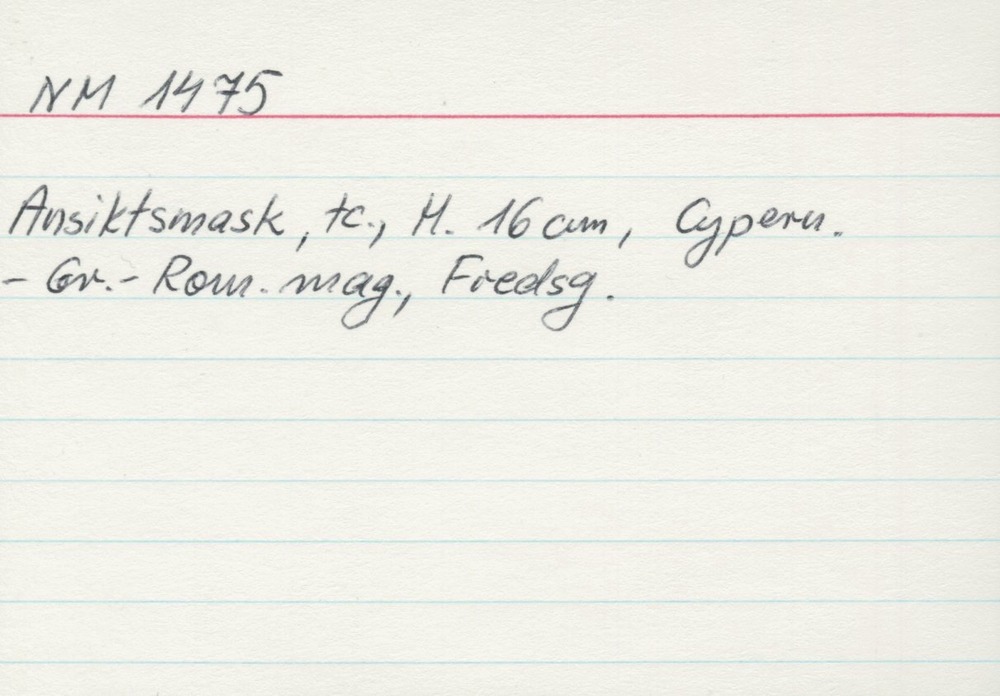 NM 1475
Ansiktsmask, tc., H. 16 cm, Cypern.
- Gr.- Rom. mag., Fredsg.